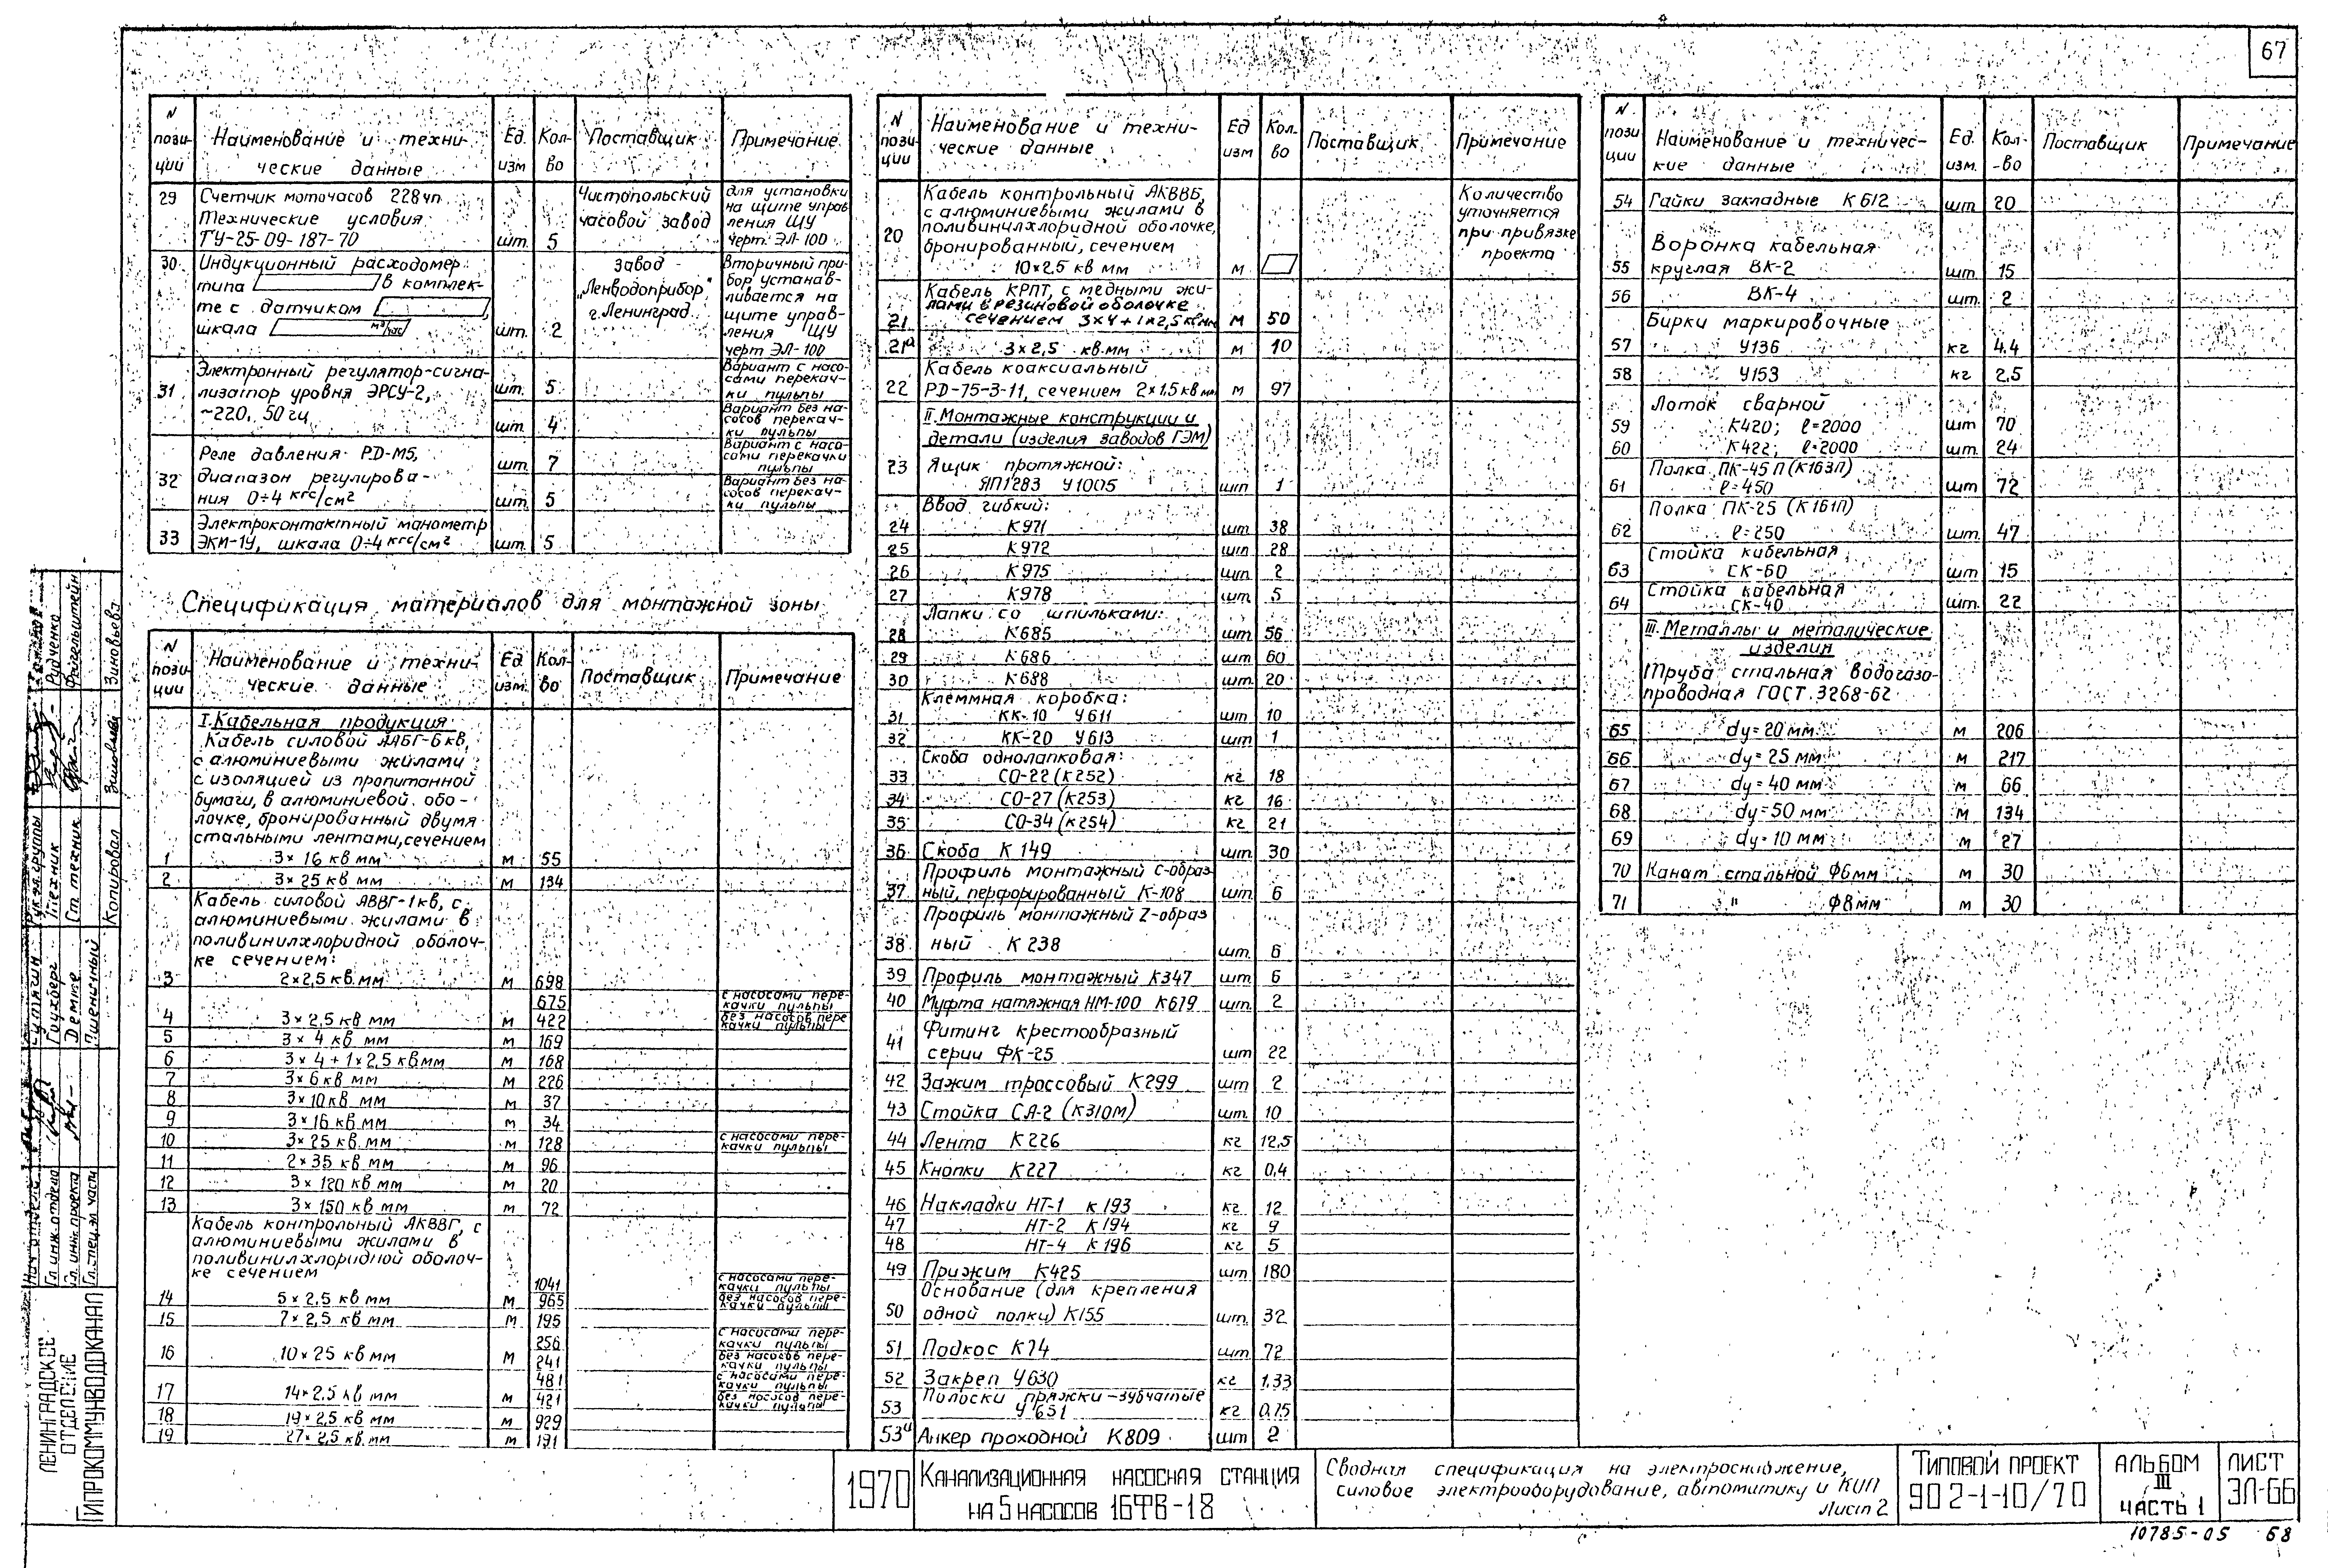 67
N позиции | Наименование и технические данные | Ед. изм | Кол-во | Поставщик | Примечание
29 Счетчик моточасов 228чп Чистопольский для установки
Технические условия часовой завод на щите управ
ТУ-25-09-187-70 шт. 5 ления ЩУ
черт. ЭЛ-100
30 Индукционный расходомер завод Вторичный при-
типа в комплек- „Ленводоприбор" бор устанав-
те с датчиком , г. Ленинград ливается на
шкала м³/час шт. 2 щите управ-
ления ЩУ
черт ЭЛ-100
Электронный регулятор-сигна- Вариант с насо-
31 лизатор уровня ЭРСУ-2, шт. 5 сами перекач-
~220, 50 гц ки пульпы
шт. 4 Вариант без на-
сосов перекач-
ки пульпы
Реле давления РД-М5, Вариант с насо-
шт. 7 сами перекачки
пульпы
32 диапазон регулирова- Вариант без на-
ния 0÷4 кгс/см² шт. 5 сосов перекач-
ки пульпы
Электроконтактный манометр
33 ЭКМ-1У, шкала 0÷4 кгс/см² шт. 5
Спецификация материалов для монтажной зоны
N пози- ции | Наименование и техни- ческие данные | Ед изм. | Кол- во | Поставщик | Примечание
I. Кабельная продукция
Кабель силовой ААБГ-6кв,
с алюминиевыми жилами
с изоляцией из пропитанной
бумаги, в алюминиевой обо-
лочке, бронированный двумя
стальными лентами, сечением
1 3×16 кв мм м 55
2 3×25 кв мм м 134
Кабель силовой АВВГ-1кв, с
алюминиевыми жилами в
поливинилхлоридной оболоч-
ке сечением:
3 2×2,5 кв. мм м 698
675 с насосами пере-
качки пульпы
4 3×2,5 кв мм м 422 без насосов пере
качки пульпы
5 3×4 кв мм м 169
6 3×4+1×2,5 кв мм м 168
7 3×6 кв мм м 226
8 3×10 кв мм м 37
9 3×16 кв мм м 34
10 3×25 кв. мм м 128 с насосами пере-
качки пульпы
11 2×35 кв мм м 96
12 3×120 кв мм м 20
13 3×150 кв мм м 72
Кабель контрольный АКВВГ, с
алюминиевыми жилами в
поливинилхлоридной оболоч-
ке сечением
1041 с насосами пере-
качки пульпы
14 5×2,5 кв мм м 965 без насосов пере-
качки пульпы
15 7×2,5 кв мм м 195
256 с насосами пере-
качки пульпы
16 10×25 кв мм м 241 без насосов пере-
качки пульпы
481 с насосами пере-
качки пульпы
17 14×2,5 кв мм м 421 без насосов пере-
качки пульпы
18 19×2,5 кв мм м 929
19 27×2,5 кв. мм м 191
N пози- ции | Наименование и техни- ческие данные | Ед изм | Кол- во | Поставщик | Примечание
Кабель контрольный АКВВБ, Количество
с алюминиевыми жилами в уточняется
20 поливинилхлоридной оболочке, при привязке
бронированный, сечением проекта
10×2,5 кв мм м
Кабель КРПТ, с медными жи-
лами в резиновой оболочке
21 сечением 3×4+1×2,5 кв мм м 50
21а 3×2,5 кв. мм м 10
Кабель коаксиальный
22 РД-75-3-11, сечением 2×1,5 кв мм м 97
II. Монтажные конструкции и
детали (изделия заводов ГЭМ)
23 Ящик протяжной:
ЯП1283 У1005 шт 1
Ввод гибкий:
24 К971 шт. 38
25 К972 шт 28
26 К975 шт. 2
27 К978 шт. 5
Лапки со шпильками:
28 К685 шт. 56
29 К686 шт. 60
30 К688 шт. 20
Клеммная коробка:
31 КК-10 У611 шт. 10
32 КК-20 У613 шт. 1
Скоба однолапковая:
33 СО-22 (К252) кг 18
34 СО-27 (К253) кг 16
35 СО-34 (К254) кг 21
36 Скоба К149 шт. 30
Профиль монтажный С-образ-
37 ный, перфорированный К-108 шт. 6
Профиль монтажный Z-образ
38 ный К238 шт. 6
39 Профиль монтажный К347 шт 6
40 Муфта натяжная НМ-100 К679 шт. 2
41 Фитинг крестообразный
серии ФК-25 шт 22
42 Зажим троссовый К299 шт 2
43 Стойка СА-2 (К310М) шт. 10
44 Лента К226 кг 12,5
45 Кнопки К227 кг 0,4
46 Накладки НТ-1 К193 кг 12
47 НТ-2 К194 кг 9
48 НТ-4 К196 кг 5
49 Прижим К425 шт 180
Основание (для крепления
50 одной полки) К155 шт. 32
51 Подкос К74 шт 72
52 Закреп У630 кг 1.33
Полоски пряжки-зубчатые
53 У651 кг 0,75
53а Анкер проходной К809 шт 2
N пози ции | Наименование и техничес- кие данные | Ед. изм. | Кол- -во | Поставщик | Примечание
54 Гайки закладные К612 шт 20
Воронка кабельная
55 круглая ВК-2 шт 15
56 ВК-4 шт. 2
Бирки маркировочные
57 У136 кг 4.4
58 У153 кг 2,5
Лоток сварной
59 К420; ℓ=2000 шт 70
60 К422; ℓ=2000 шт. 24
Полка ПК-45П (К163П)
61 ℓ=450 шт 72
Полка ПК-25 (К161П)
62 ℓ=250 шт. 47
Стойка кабельная
63 СК-60 шт 15
Стойка кабельная
64 СК-40 шт. 22
III. Металлы и металические
изделия
Труба стальная водогазо-
проводная ГОСТ 3268-62
65 dу=20 мм м 206
66 dу=25 мм м 217
67 dу=40 мм м 66
68 dу=50 мм м 134
69 dу=10 мм м 27
70 Канат стальной Ф6мм м 30
71 " Ф8мм м 30
Радченко
Файгельштейн
Зиновьева
Рук. эл. группы
Техник
Ст техник
Копировал
Гоухберг
Демке
Пшеничный
Нач. отдела
Гл. инж. отдела
Гл. инж. проекта
Гл. спец. эл. части
ЛЕНИНГРАДСКОЕ
ОТДЕЛЕНИЕ
ГИПРОКОММУНВОДОКАНАЛ
1970
КАНАЛИЗАЦИОННАЯ НАСОСНАЯ СТАНЦИЯ
НА 5 НАСОСОВ 16ФВ-18
Сводная спецификация на электроснабжение,
силовое электрооборудование, автоматику и КИП
Лист 2
ТИПОВОЙ ПРОЕКТ
902-1-10/70
АЛЬБОМ
III
ЧАСТЬ 1
ЛИСТ
ЭЛ-66
10785-05 68